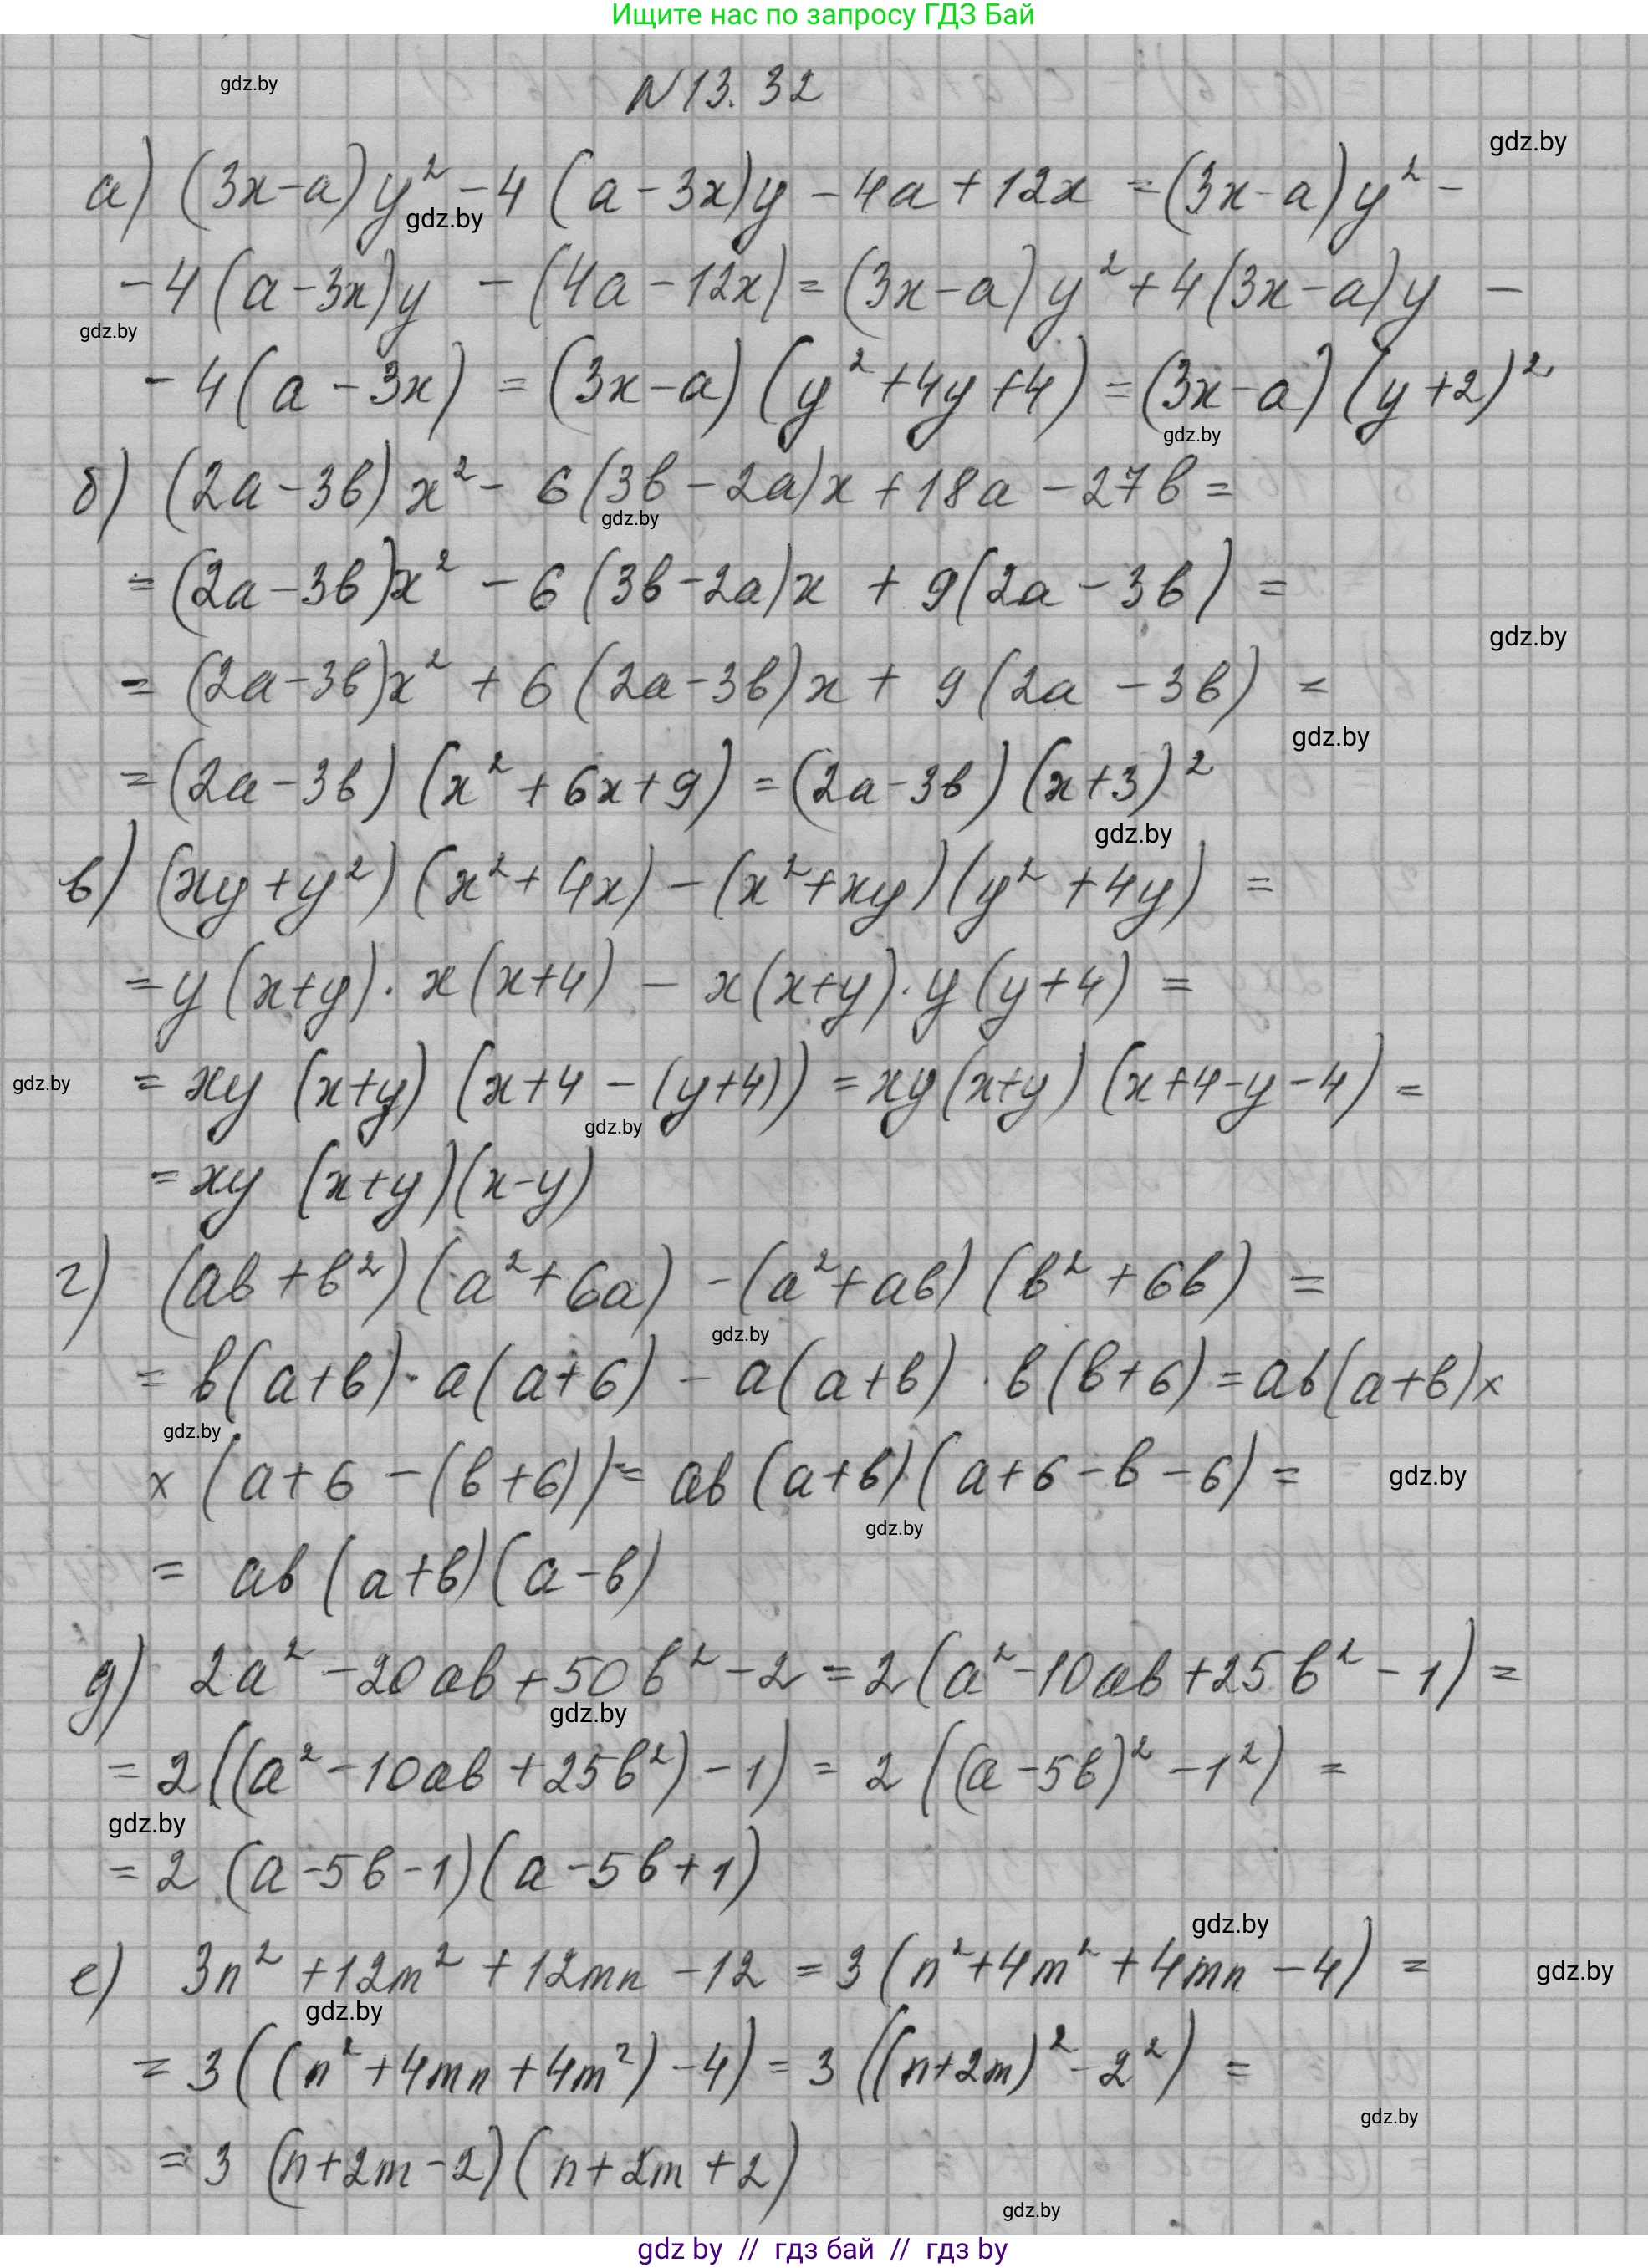 Ищите нас по запросу ГДЗ Бай
gdz.by
N13.32
gdz.by
а) (3x-a)y² - 4(a-3x)y - 4a + 12x = (3x-a)y² -
gdz.by
- 4(a-3x)y - (4a-12x) = (3x-a)y² + 4(3x-a)y -
gdz.by
- 4(a-3x) = (3x-a)(y²+4y+4) = (3x-a)(y+2)²
gdz.by
б) (2a-3b)x² - 6(3b-2a)x + 18a - 27b =
gdz.by
= (2a-3b)x² - 6(3b-2a)x + 9(2a-3b) =
gdz.by
= (2a-3b)x² + 6(2a-3b)x + 9(2a-3b) =
gdz.by
= (2a-3b)(x²+6x+9) = (2a-3b)(x+3)²
gdz.by
в) (xy+y²)(x²+4x) - (x²+xy)(y²+4y) =
= y(x+y)·x(x+4) - x(x+y)·y(y+4) =
gdz.by
= xy(x+y)(x+4-(y+4)) = xy(x+y)(x+4-y-4) =
gdz.by
= xy(x+y)(x-y)
г) (ab+b²)(a²+6a) - (a²+ab)(b²+6b) =
gdz.by
= b(a+b)·a(a+6) - a(a+b)·b(b+6) = ab(a+b)×
gdz.by
× (a+6-(b+6)) = ab(a+b)(a+6-b-6) =
gdz.by
gdz.by
= ab(a+b)(a-b)
д) 2a² - 20ab + 50b² - 2 = 2(a²-10ab+25b²-1) =
gdz.by
= 2((a²-10ab+25b²)-1) = 2((a-5b)²-1²) =
gdz.by
= 2(a-5b-1)(a-5b+1)
gdz.by
е) 3n² + 12m² + 12mn - 12 = 3(n²+4m²+4mn-4) =
gdz.by
gdz.by
= 3((n²+4mn+4m²)-4) = 3((n+2m)²-2²) =
gdz.by
= 3(n+2m-2)(n+2m+2)
gdz.by
gdz by // гдз бай // гдз by